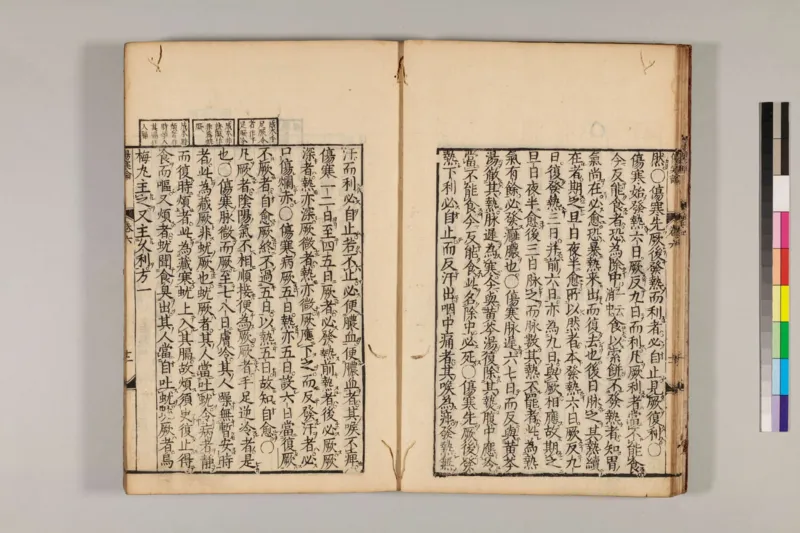 然○傷寒先厥後發熱而利者必自止見厥復利○
傷寒始發熱六日厥反九日而利凡厥利者當不能食
今反能食者恐為除中一云消中食以索餅不發熱者知胃
氣尚在必愈恐暴熱來出而復去也後日脉之其熱續
在者期之旦日夜半愈所以然者本發熱六日厥反九
日復發熱三日并前六日亦為九日與厥相應故期之
旦日夜半愈後三日脉之而脉數其熱不罷者此為熱
氣有餘必發癰膿也○傷寒脉遲六七日而反與黃芩
湯徹其熱脉遲為寒今與黃芩湯復除其熱腹中應冷
當不能食今反能食此名除中必死○傷寒先厥後發
熱下利必自止而反汗出咽中痛者其喉為痹發熱無
汗而利必自止若不止必便膿血便膿血者其喉不痹
傷寒一二日至四五日厥者必發熱前熱者後必厥厥
深者熱亦深厥微者熱亦微厥應下之而反發汗者必
口傷爛赤○傷寒病厥五日熱亦五日設六日當復厥
不厥者自愈厥終不過五日以熱五日故知自愈○
凡厥者陰陽氣不相順接便為厥厥者手足逆冷者是
也○傷寒脉微而厥至七八日膚冷其人躁無暫安時
者此為藏厥非蚘厥也蚘厥者其人當吐蚘今病者靜
而復時煩者此為藏寒蚘上入其膈故煩須臾復止得
食而嘔又煩者蚘聞食臭出其人當自吐蚘蚘厥者烏
梅丸主之又主久利方一